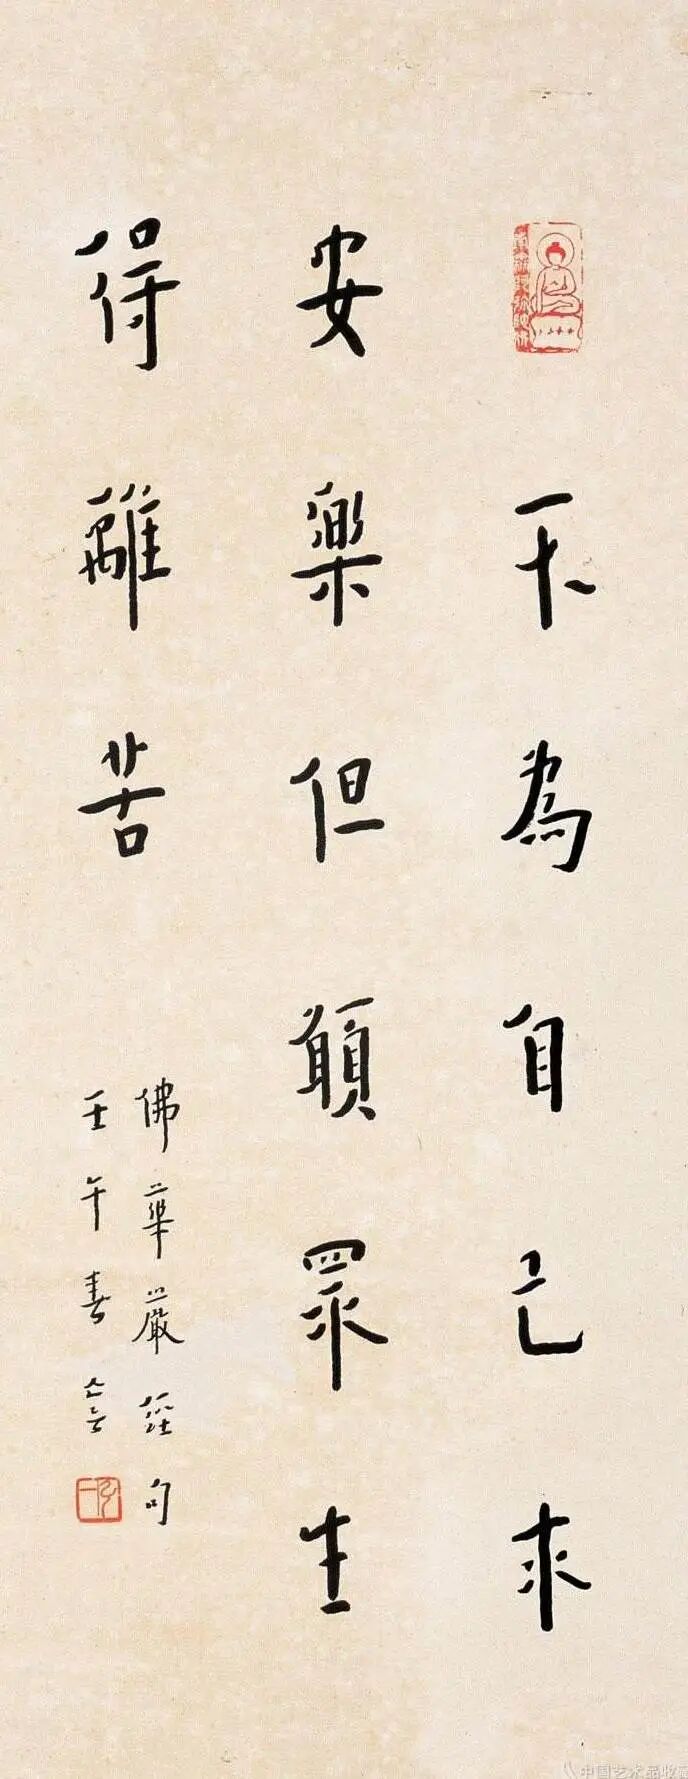 不為自己求
安樂但願眾生
得離苦
佛華嚴經句
壬午春亡言
中国艺术品收藏